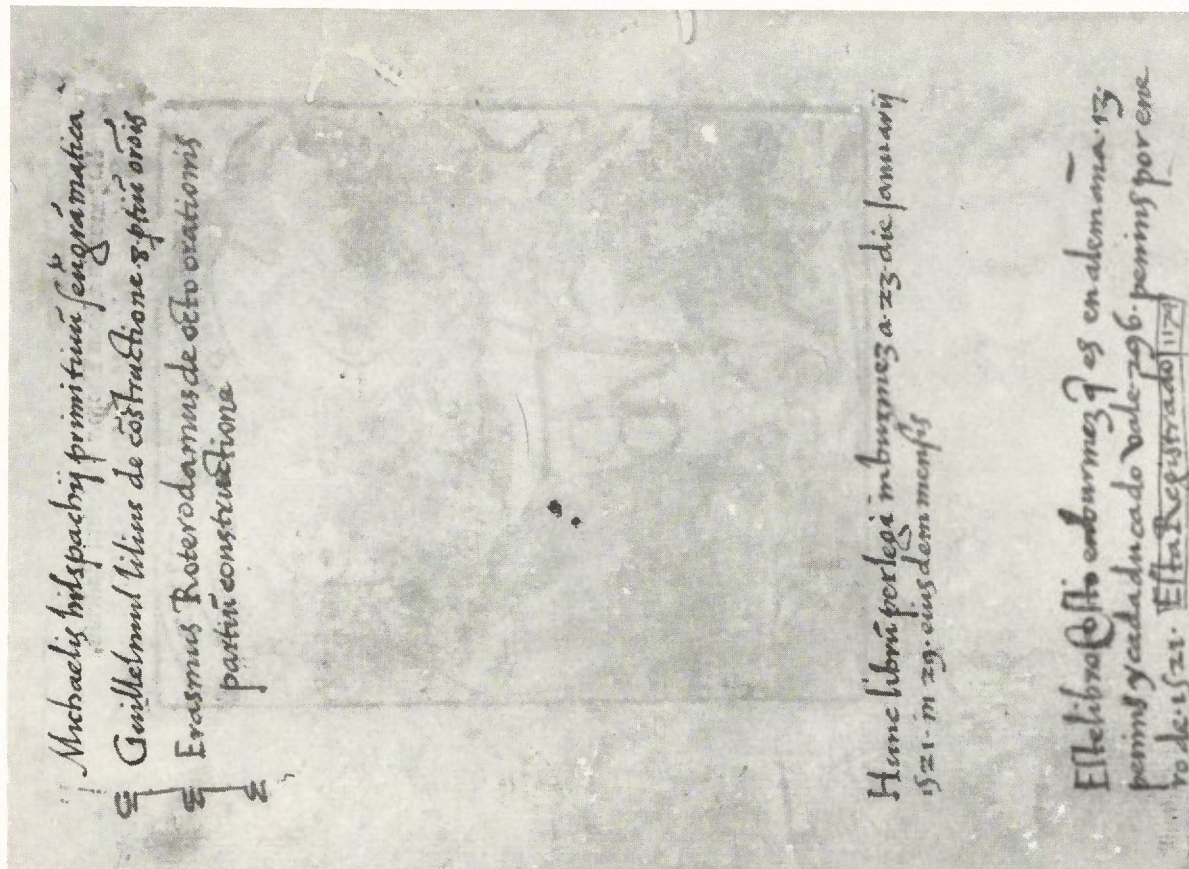 Michaelis hilspachij primitiuũ seu grãmatica
Guillelmus lilius de cõstructione .8. ptiũ orõis
Erasmus Roterodamus de octo orationis
partiũ constructione
Hunc librũ perlegi in burmez a .23. die Januarij
1521. in 29. eiusdem mensis
Este libro costo en burmez q̃ es en alemana .13.
penins y cada ducado vale .296. penins por ene
ro de .1521. Esta Registrado 1179